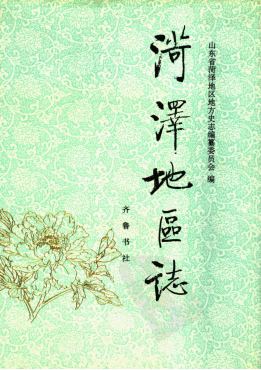 山东省菏泽地区地方史志编纂委员会 编
菏澤地區誌
齐鲁书社